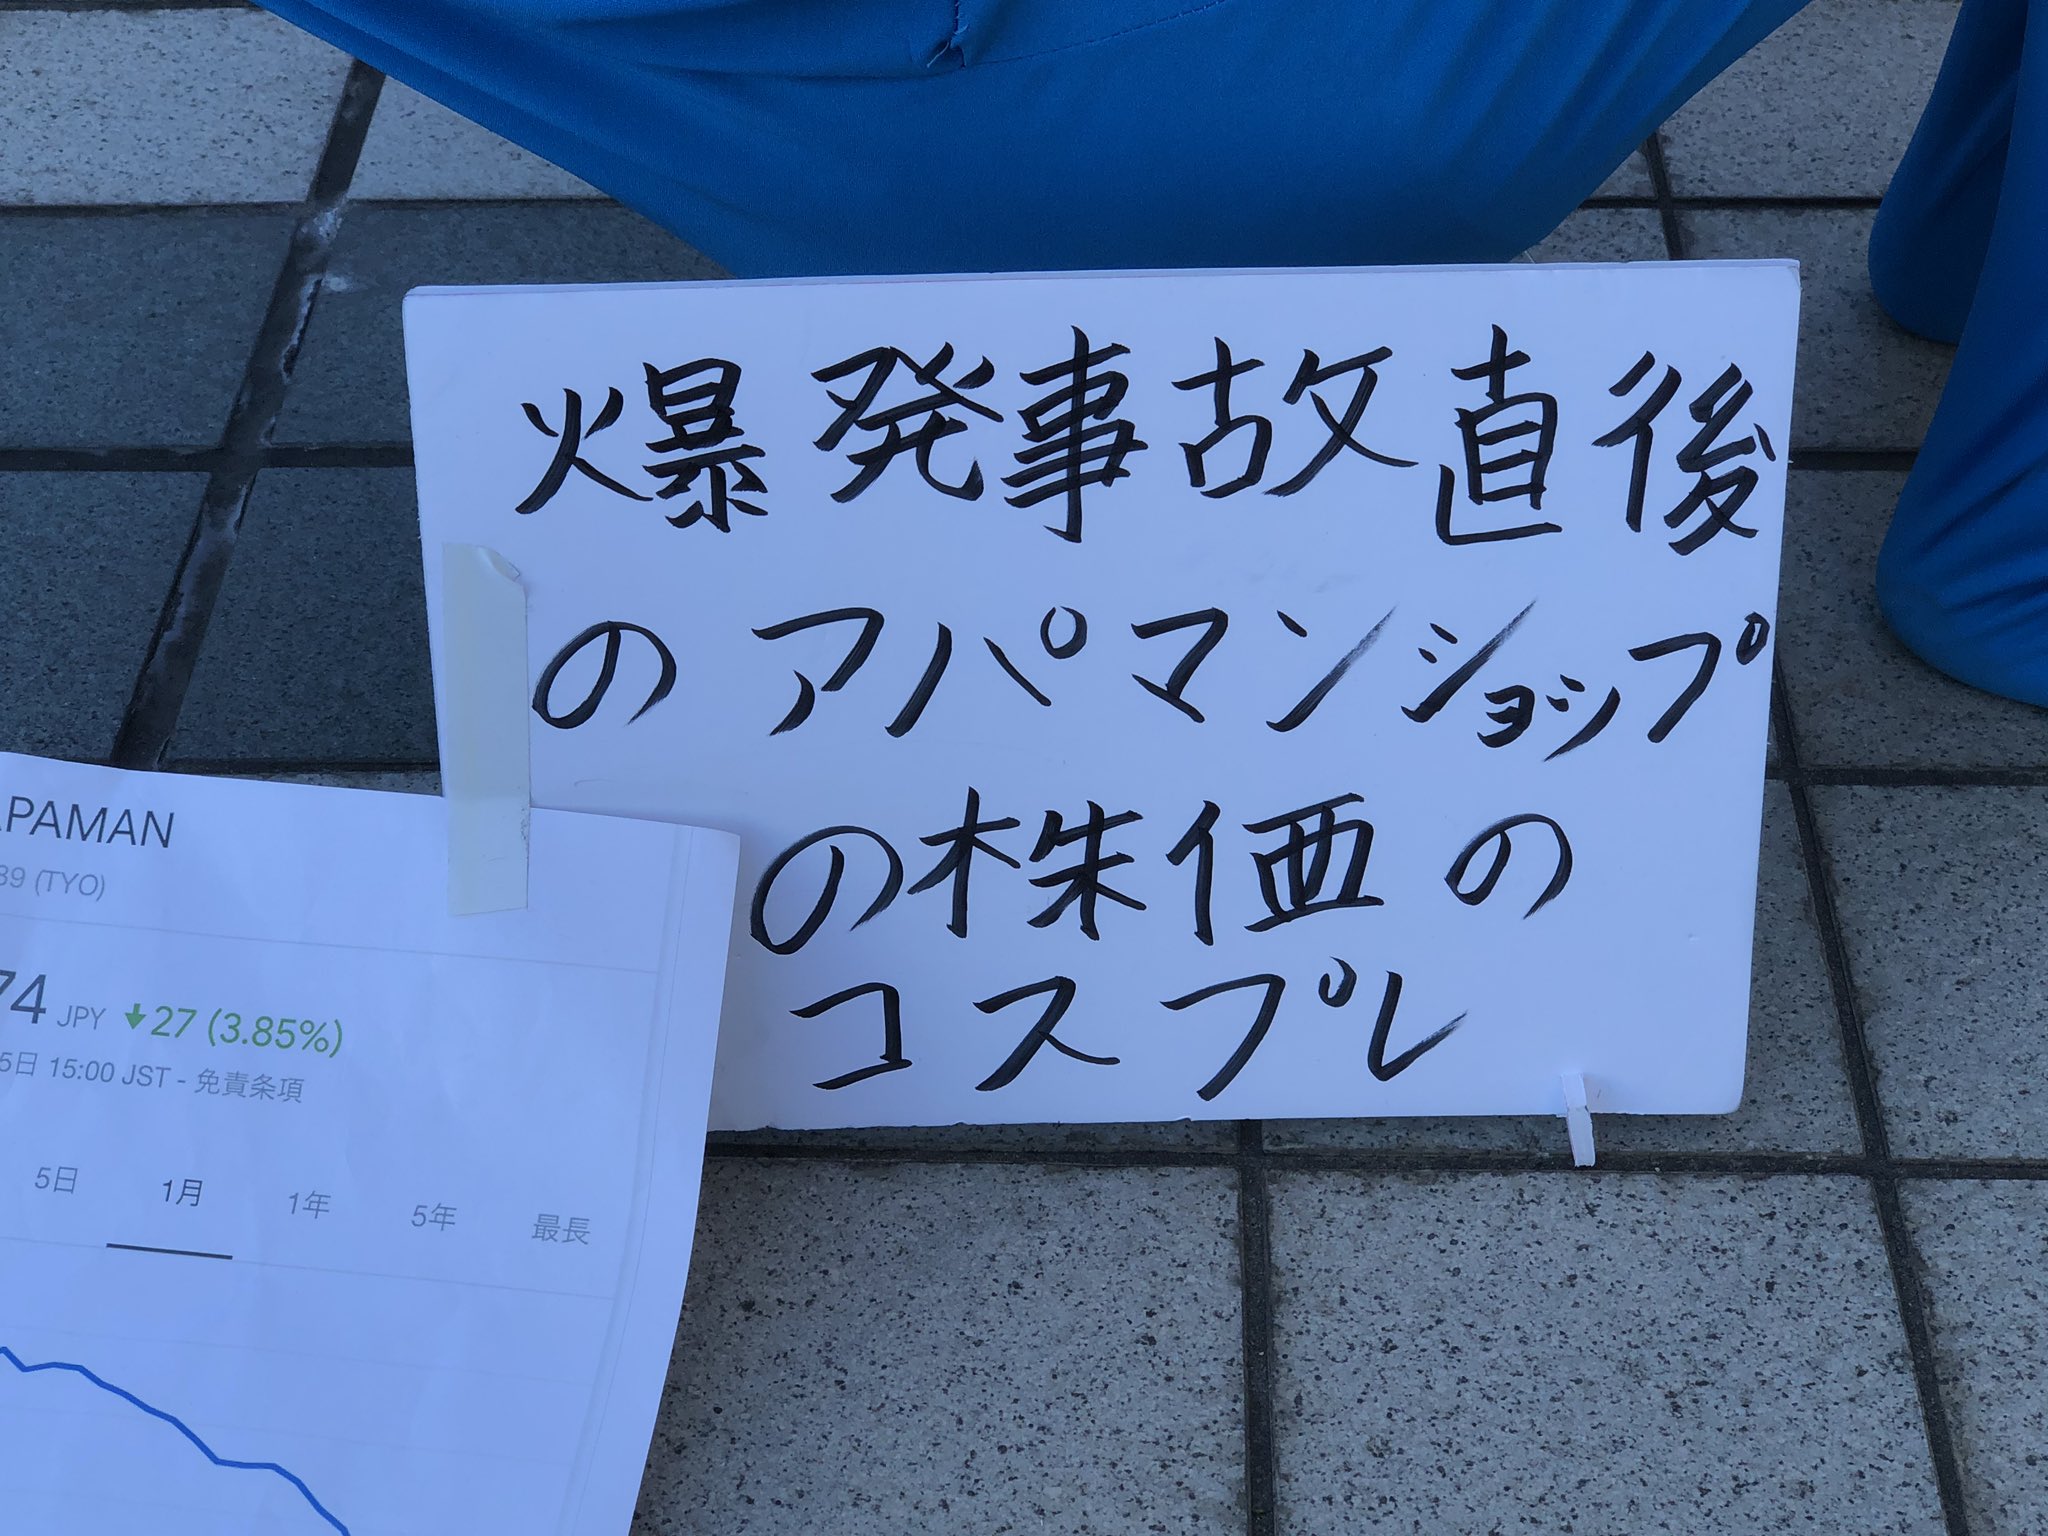 爆発事故直後
のアパマンショップ
の株価の
コスプレ
APAMAN
39 (TYO)
74 JPY ↓27 (3.85%)
5日 15:00 JST - 免責条項
5日 1月 1年 5年 最長